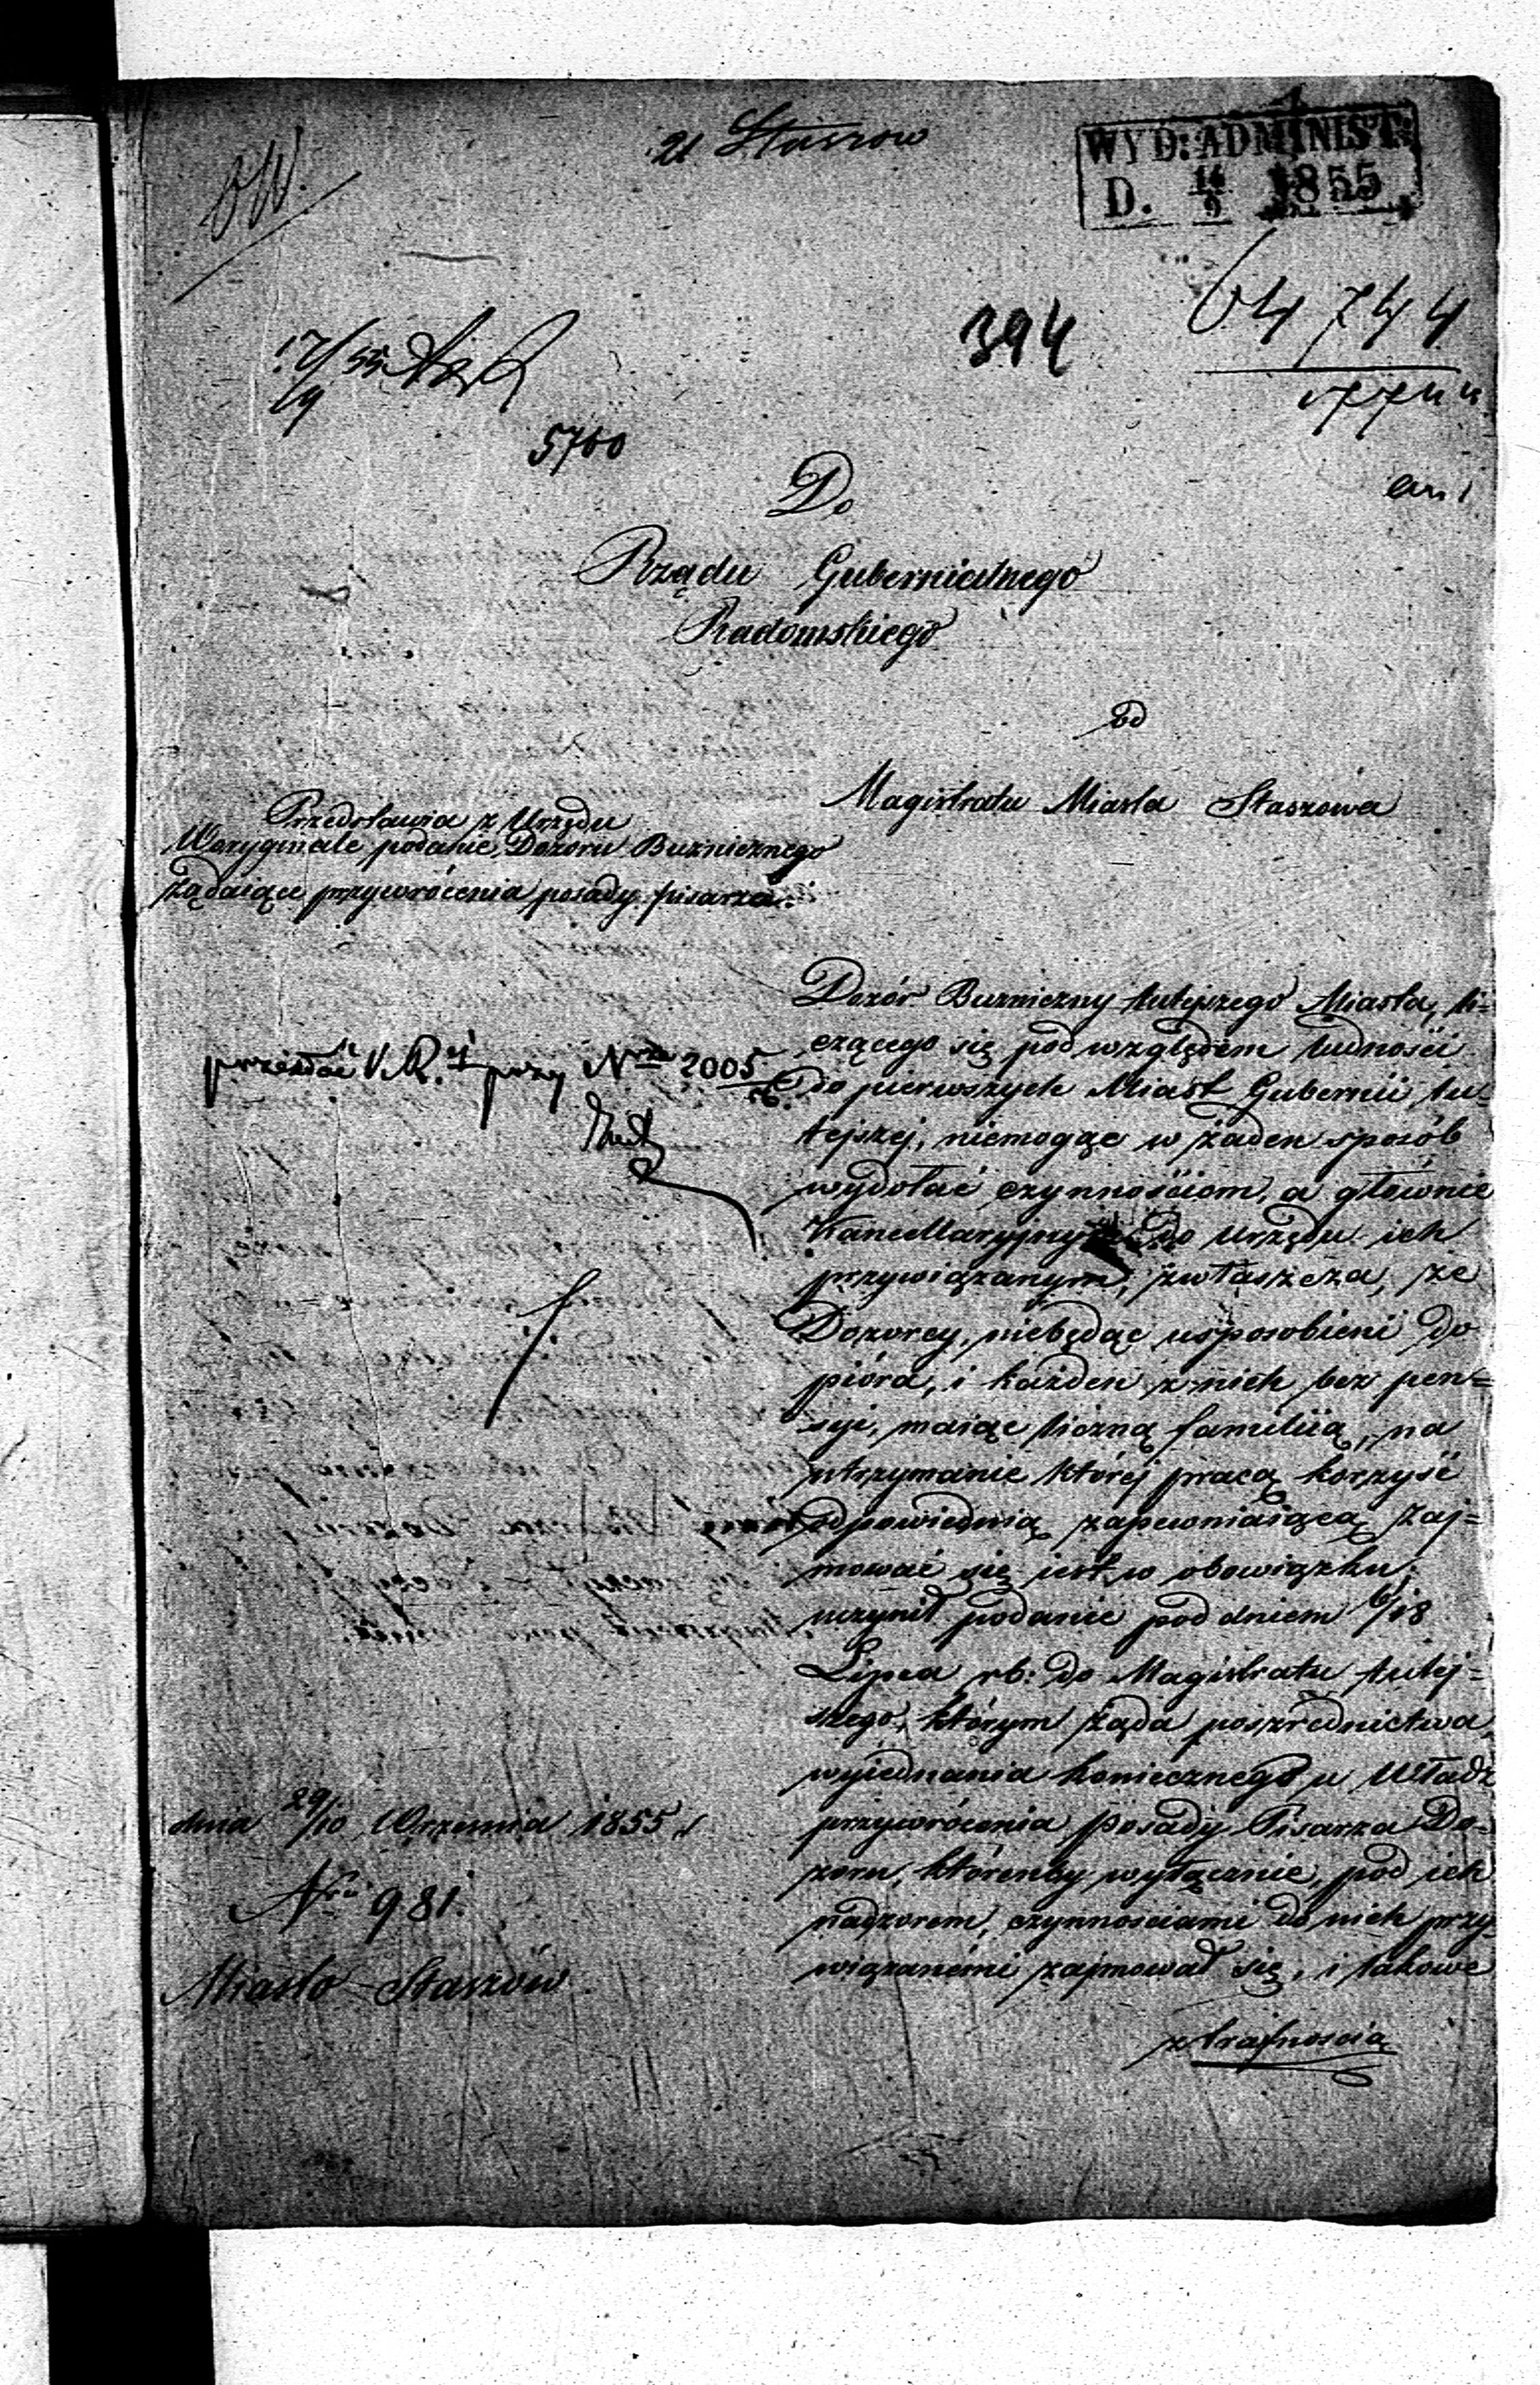 21 Staszow
WYD: ADMINIST:
D. 14/9 1855
64744
17744
394
17/9 55
5760
Do
Rządu Gubernialnego
Radomskiego
od
Magistratu Miasta Staszowa
Przedstawia z Urzędu
W oryginale podanie Dozoru Buzniczego
Żądaiące przywrócenia posady pisarza.
przesłać V. R. przy Nrze 2005
Dozór Buzniczny tutejszego Miasta, li=
czącego się pod względem ludności
do pierwszych Miast Gubernii tu=
tejszej, niemogąc w żaden sposób
wydołać czynnościom, a głównie
Kancellaryjnym do urzędu ich
przywiązanym, zwłaszcza, że
Dozorcy, niebędąc usposobieni do
pióra, i każden z nich bez pen=
syi, maiąc liczną familiią, na
utrzymanie której pracą korzyść
odpowiednią zapewniaiącą zaj=
mować się iest w obowiązku;
uczynił podanie pod dniem 6/18
Lipca rb: do Magistratu tutej=
szego, którym żąda poszrednictwa,
wyiednania koniecznego u Władz
przywrócenia posady Pisarza Do=
zoru, którenby wyłącznie, pod ich
nadzorem, czynnosciami do nich przy
wiązanemi zajmował się, i takowe
z trafnoscią
dnia 29/10 Września 1855 r
Nro 981.
Miasto Staszów